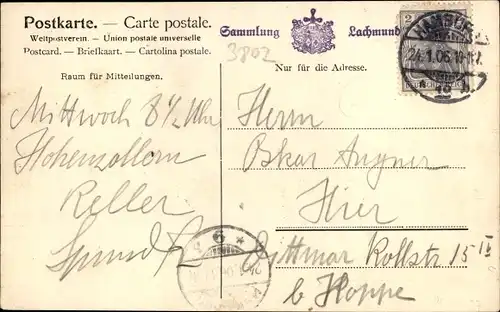 Postkarte. — Carte postale.
Weltpostverein. — Union postale universelle
Postcard. — Briefkaart. — Cartolina postale.
Sammlung Lachmund
3802
2
HAMBURG
24.1.06.10-11V.
DEUTSCHES REICH
Raum für Mitteilungen.
Nur für die Adresse.
Mittwoch 8 1/2 Uhr
Hohenzollern
Keller
Herrn
Oskar
Hier
Dittmar Kollstr 15 IV
b. Hoppe
6